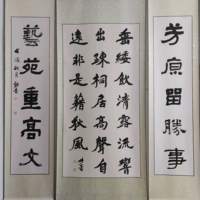 芳留勝事
垂緌飲清露流響
出疎桐居高聲自
遠非是藉秋風
藝苑重高文